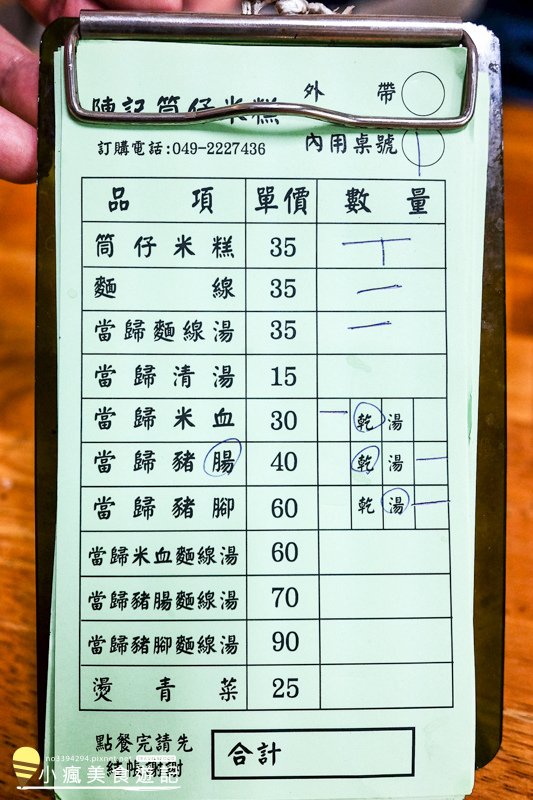 外 帶
陳記筒仔米糕
訂購電話:049-2227436 內用桌號
品 項 單價 數 量
筒仔米糕 35 丅
麵 線 35 一
當歸麵線湯 35 一
當歸清湯 15
當歸米血 30 一 乾 湯
當歸豬腸 40 乾 湯 一
當歸豬腳 60 乾 湯 一
當歸米血麵線湯 60
當歸豬腸麵線湯 70
當歸豬腳麵線湯 90
燙 青 菜 25
點餐完請先
結帳謝謝
合計
no3394294.pixnet.net
小瘋美食遊記